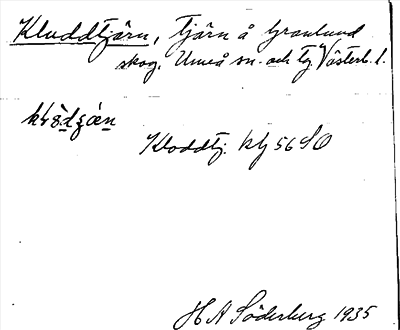 Kluddtjärn, tjärn å Granlund
skog, Umeå sn. och tg Västerb. l.
Kloddtj. kbl 56 SO
H A Söderberg 1935